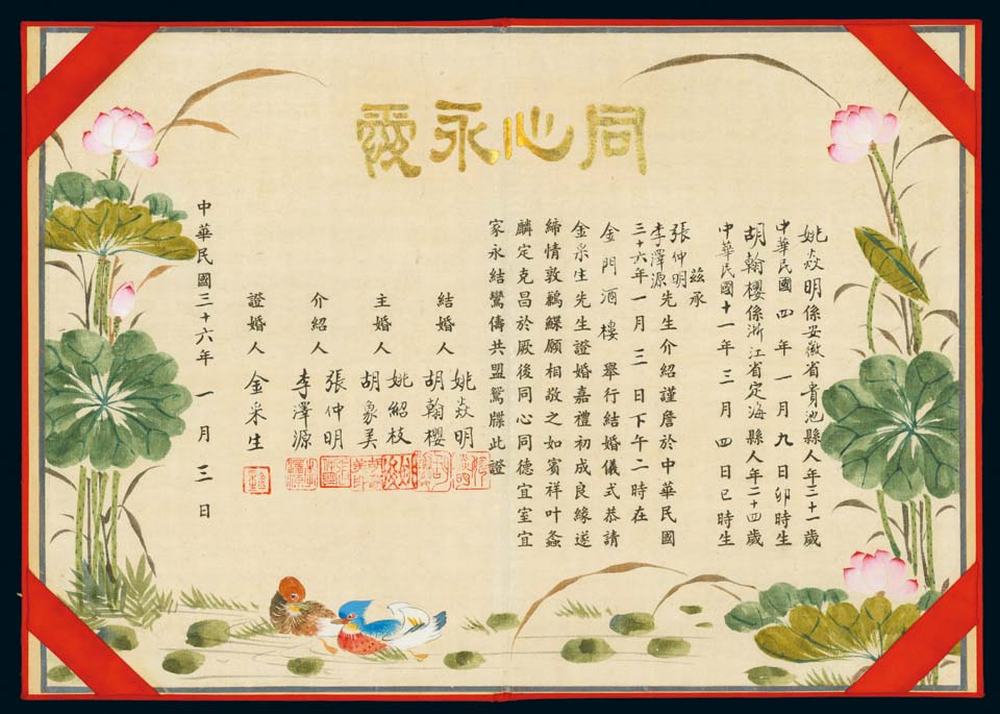 同心永愛
姚焱明係安徽省貴池縣人年三十一歲
中華民國四年一月九日卯時生
胡翰櫻係浙江省定海縣人年二十四歲
中華民國十一年三月四日巳時生
茲承
張仲明
李澤源
先生介紹謹詹於中華民國
三十六年一月三日下午二時在
金門酒樓舉行結婚儀式恭請
金采生先生證婚嘉禮初成良緣遂
締情敦鶼鰈願相敬之如賓祥叶螽
麟定克昌於厥後同心同德宜室宜
家永結鸞儔共盟鴛牒此證
結婚人
姚焱明
胡翰櫻
主婚人
姚紹枝
胡象美
介紹人
張仲明
李澤源
證婚人
金采生
中華民國三十六年一月三日